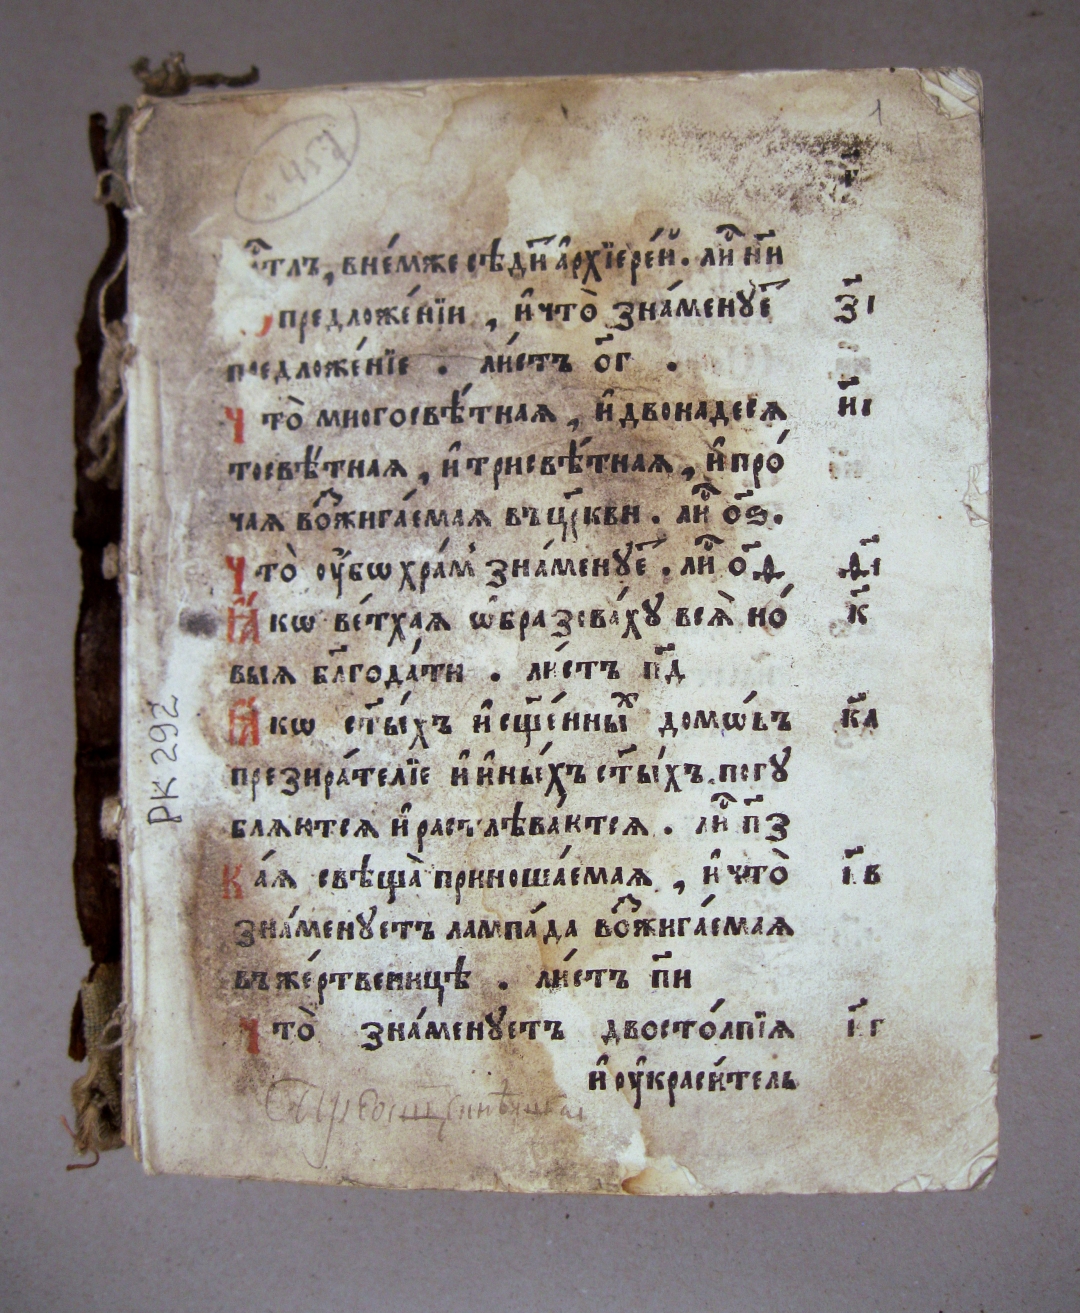 № 457
1
г҃
тлъ, в не́мже сѣди҃ а҆рхїере́й. ли н҃и
предложе́нїи, и҆ что̀ зна́менуе з҃і
предложе́нїе. ли́стъ о҃г.
Что̀ многосвѣ́тная, и҆ двонадеся и҃і
тосвѣ́тная, и҆ трисвѣ́тная, и҆ про́
чая во̑жига́емая въ цр҃кви. ли о҃ѕ.
Что̀ оу҆́бѡ хра́м зна́менуе. ли о҃д д҃і
Ꙗ҆́кѡ ве́тхая ѡ҆бразова́ху вся̀ но́ к҃
выя бл҃года́ти. ли́стъ п҃д
Ꙗ҆́кѡ ст҃ы́хъ и҆ сщ҃е́нны домѡ́въ к҃а
презира́телїе и҆ и҆ны́хъ ст҃ы́хъ погу
бляются и҆ расъ лѣва́ются. ли п҃з
Ка́я свѣща̀ приноша́емая, и҆ что̀ і҃в
зна́менуетъ лампа́да во̑жига́емая
въ же́ртвенницѣ. ли́стъ п҃и
Что̀ зна́менуетъ двосто́лпїя і҃г
и҆ оу҆краси́тель
РК 292